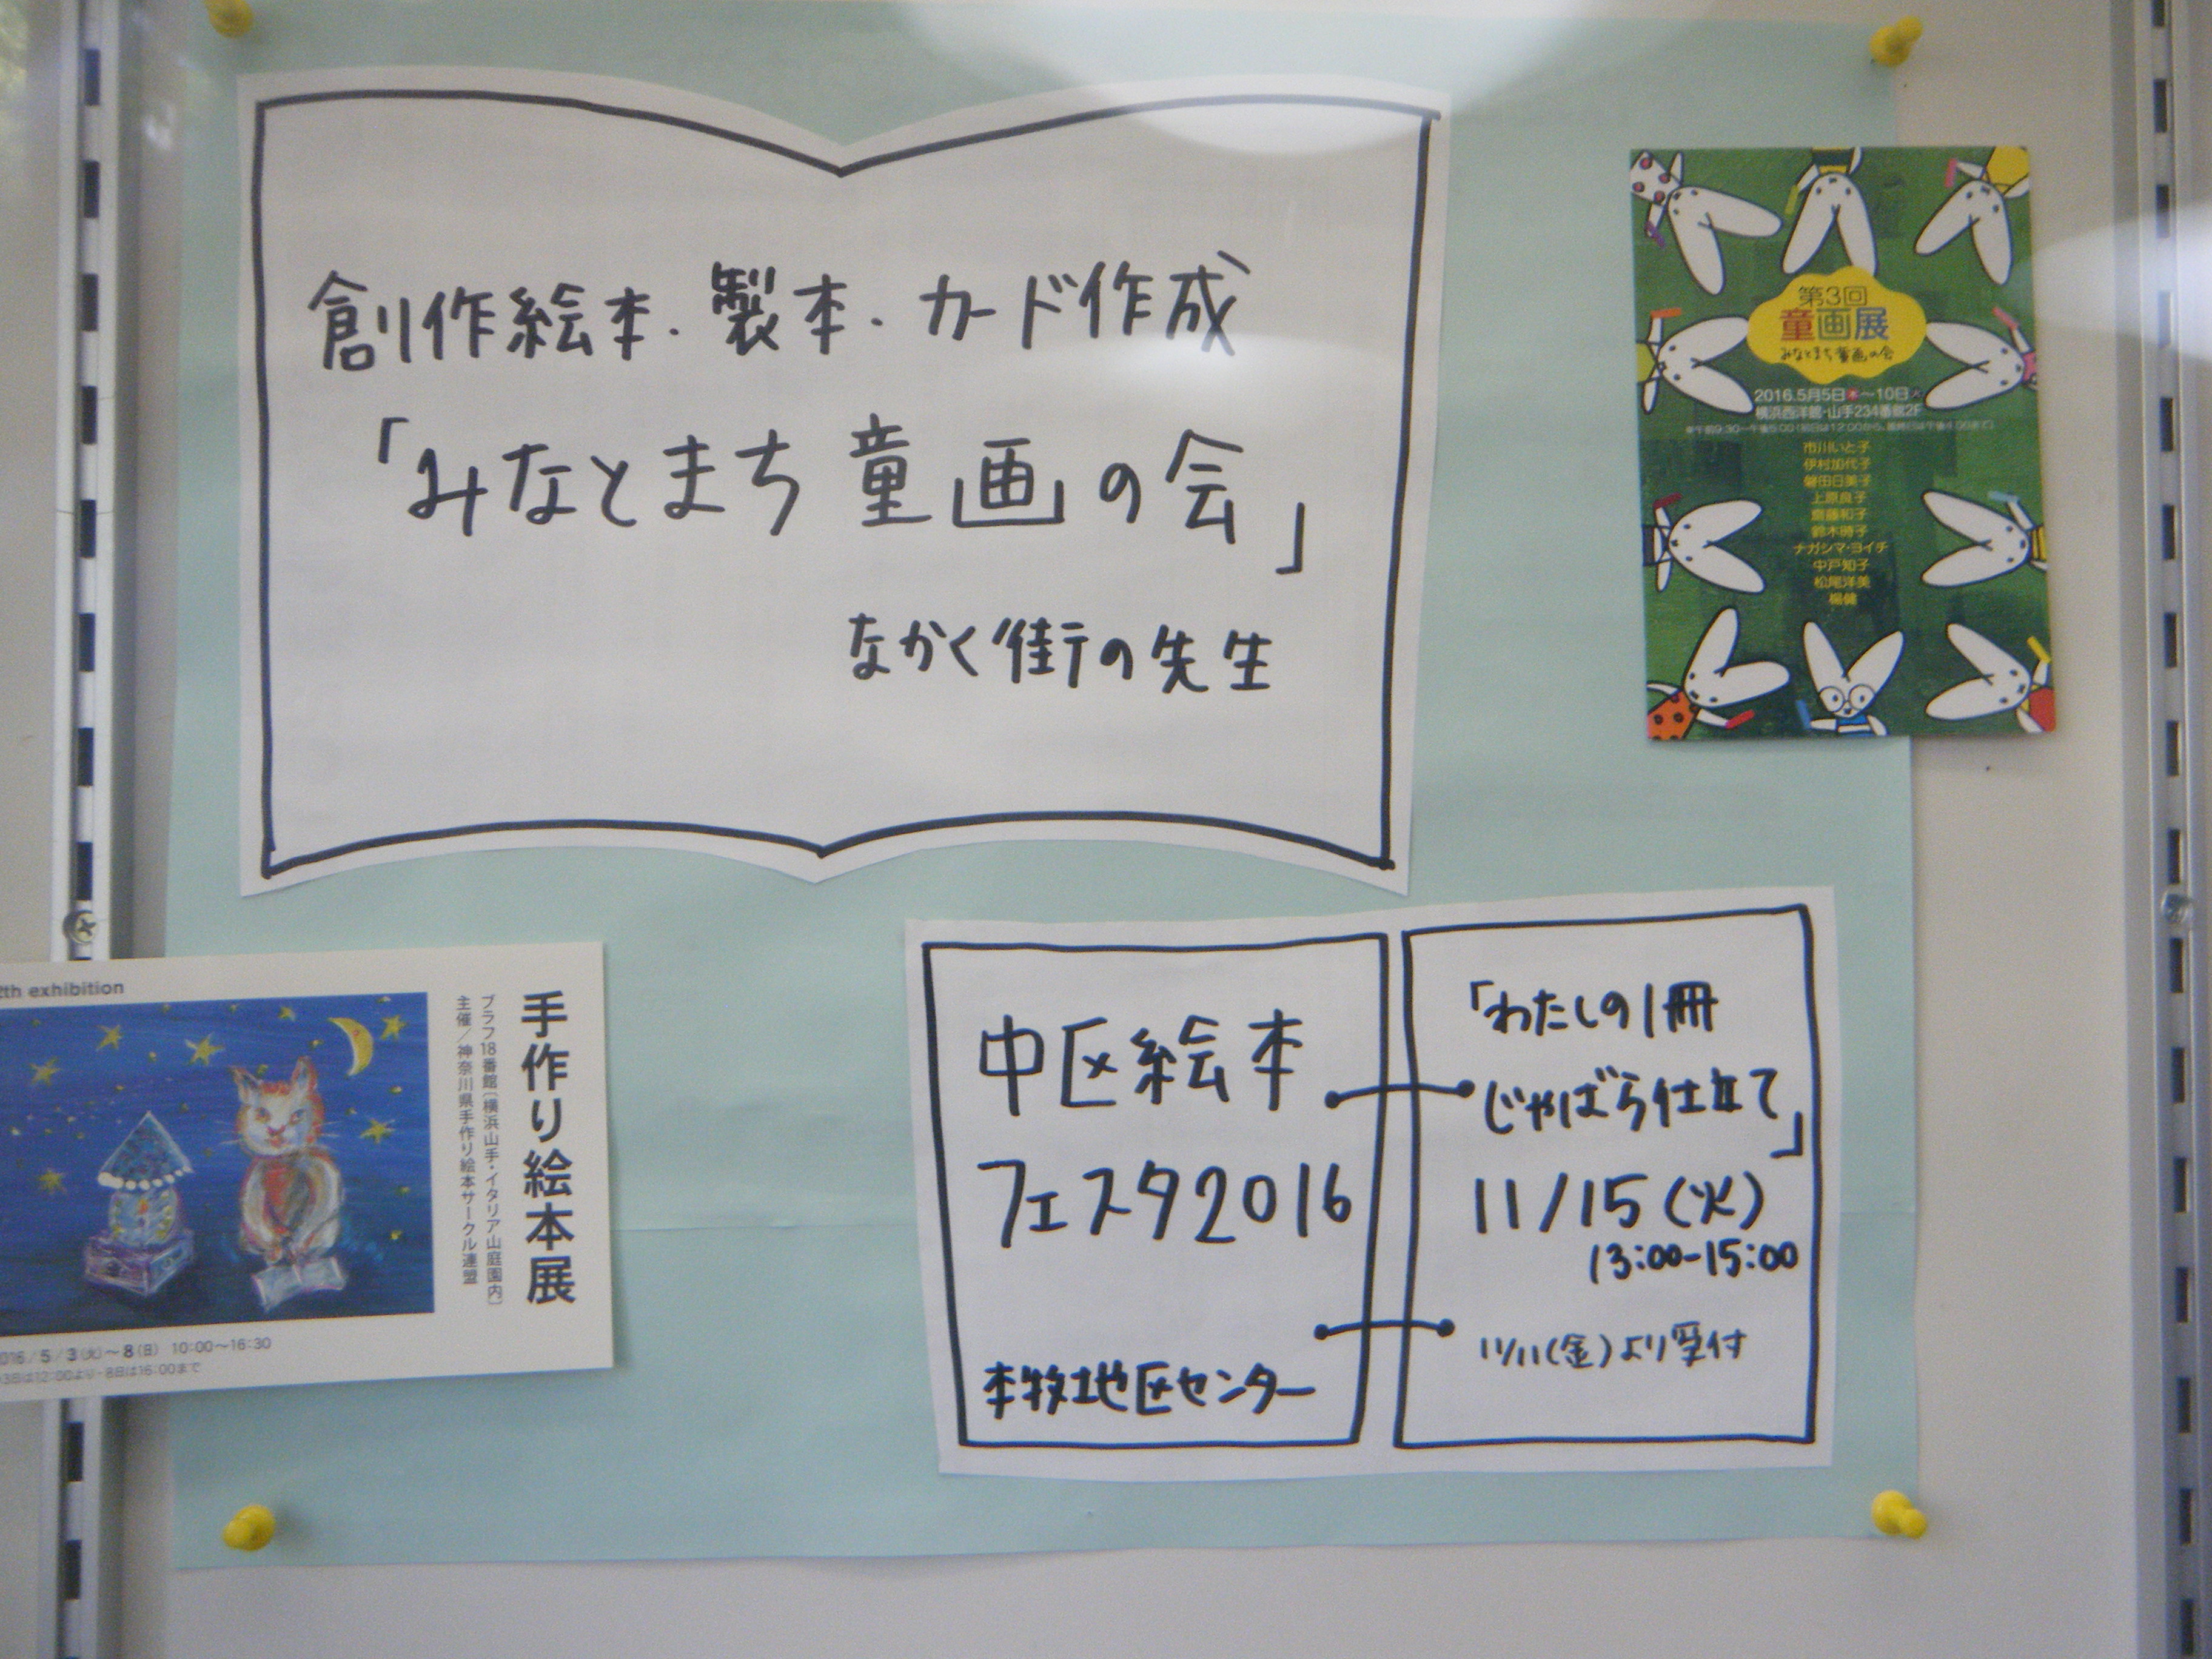 創作絵本・製本・カード作成
「みなとまち童画の会」
なかく街の先生
第3回
童画展
みなとまち童画の会
2016.5月5日木〜10日火
横浜西洋館・山手234番館2F
市川いと子
伊村加代子
磐田日美子
上原良子
齋藤和子
鈴木時子
ナガシマ・ヨイチ
中戸知子
松尾洋美
楊健
th exhibition
手作り絵本展
ブラフ18番館〔横浜山手・イタリア山庭園内〕
主催／神奈川県手作り絵本サークル連盟
016/5/3(火)〜8(日) 10:00〜16:30
3日は12:00より・8日は16:00まで
中区絵本
フェスタ2016
本牧地区センター
「わたしの1冊
じゃばら仕立て」
11/15(火)
13:00-15:00
11/11(金)より受付